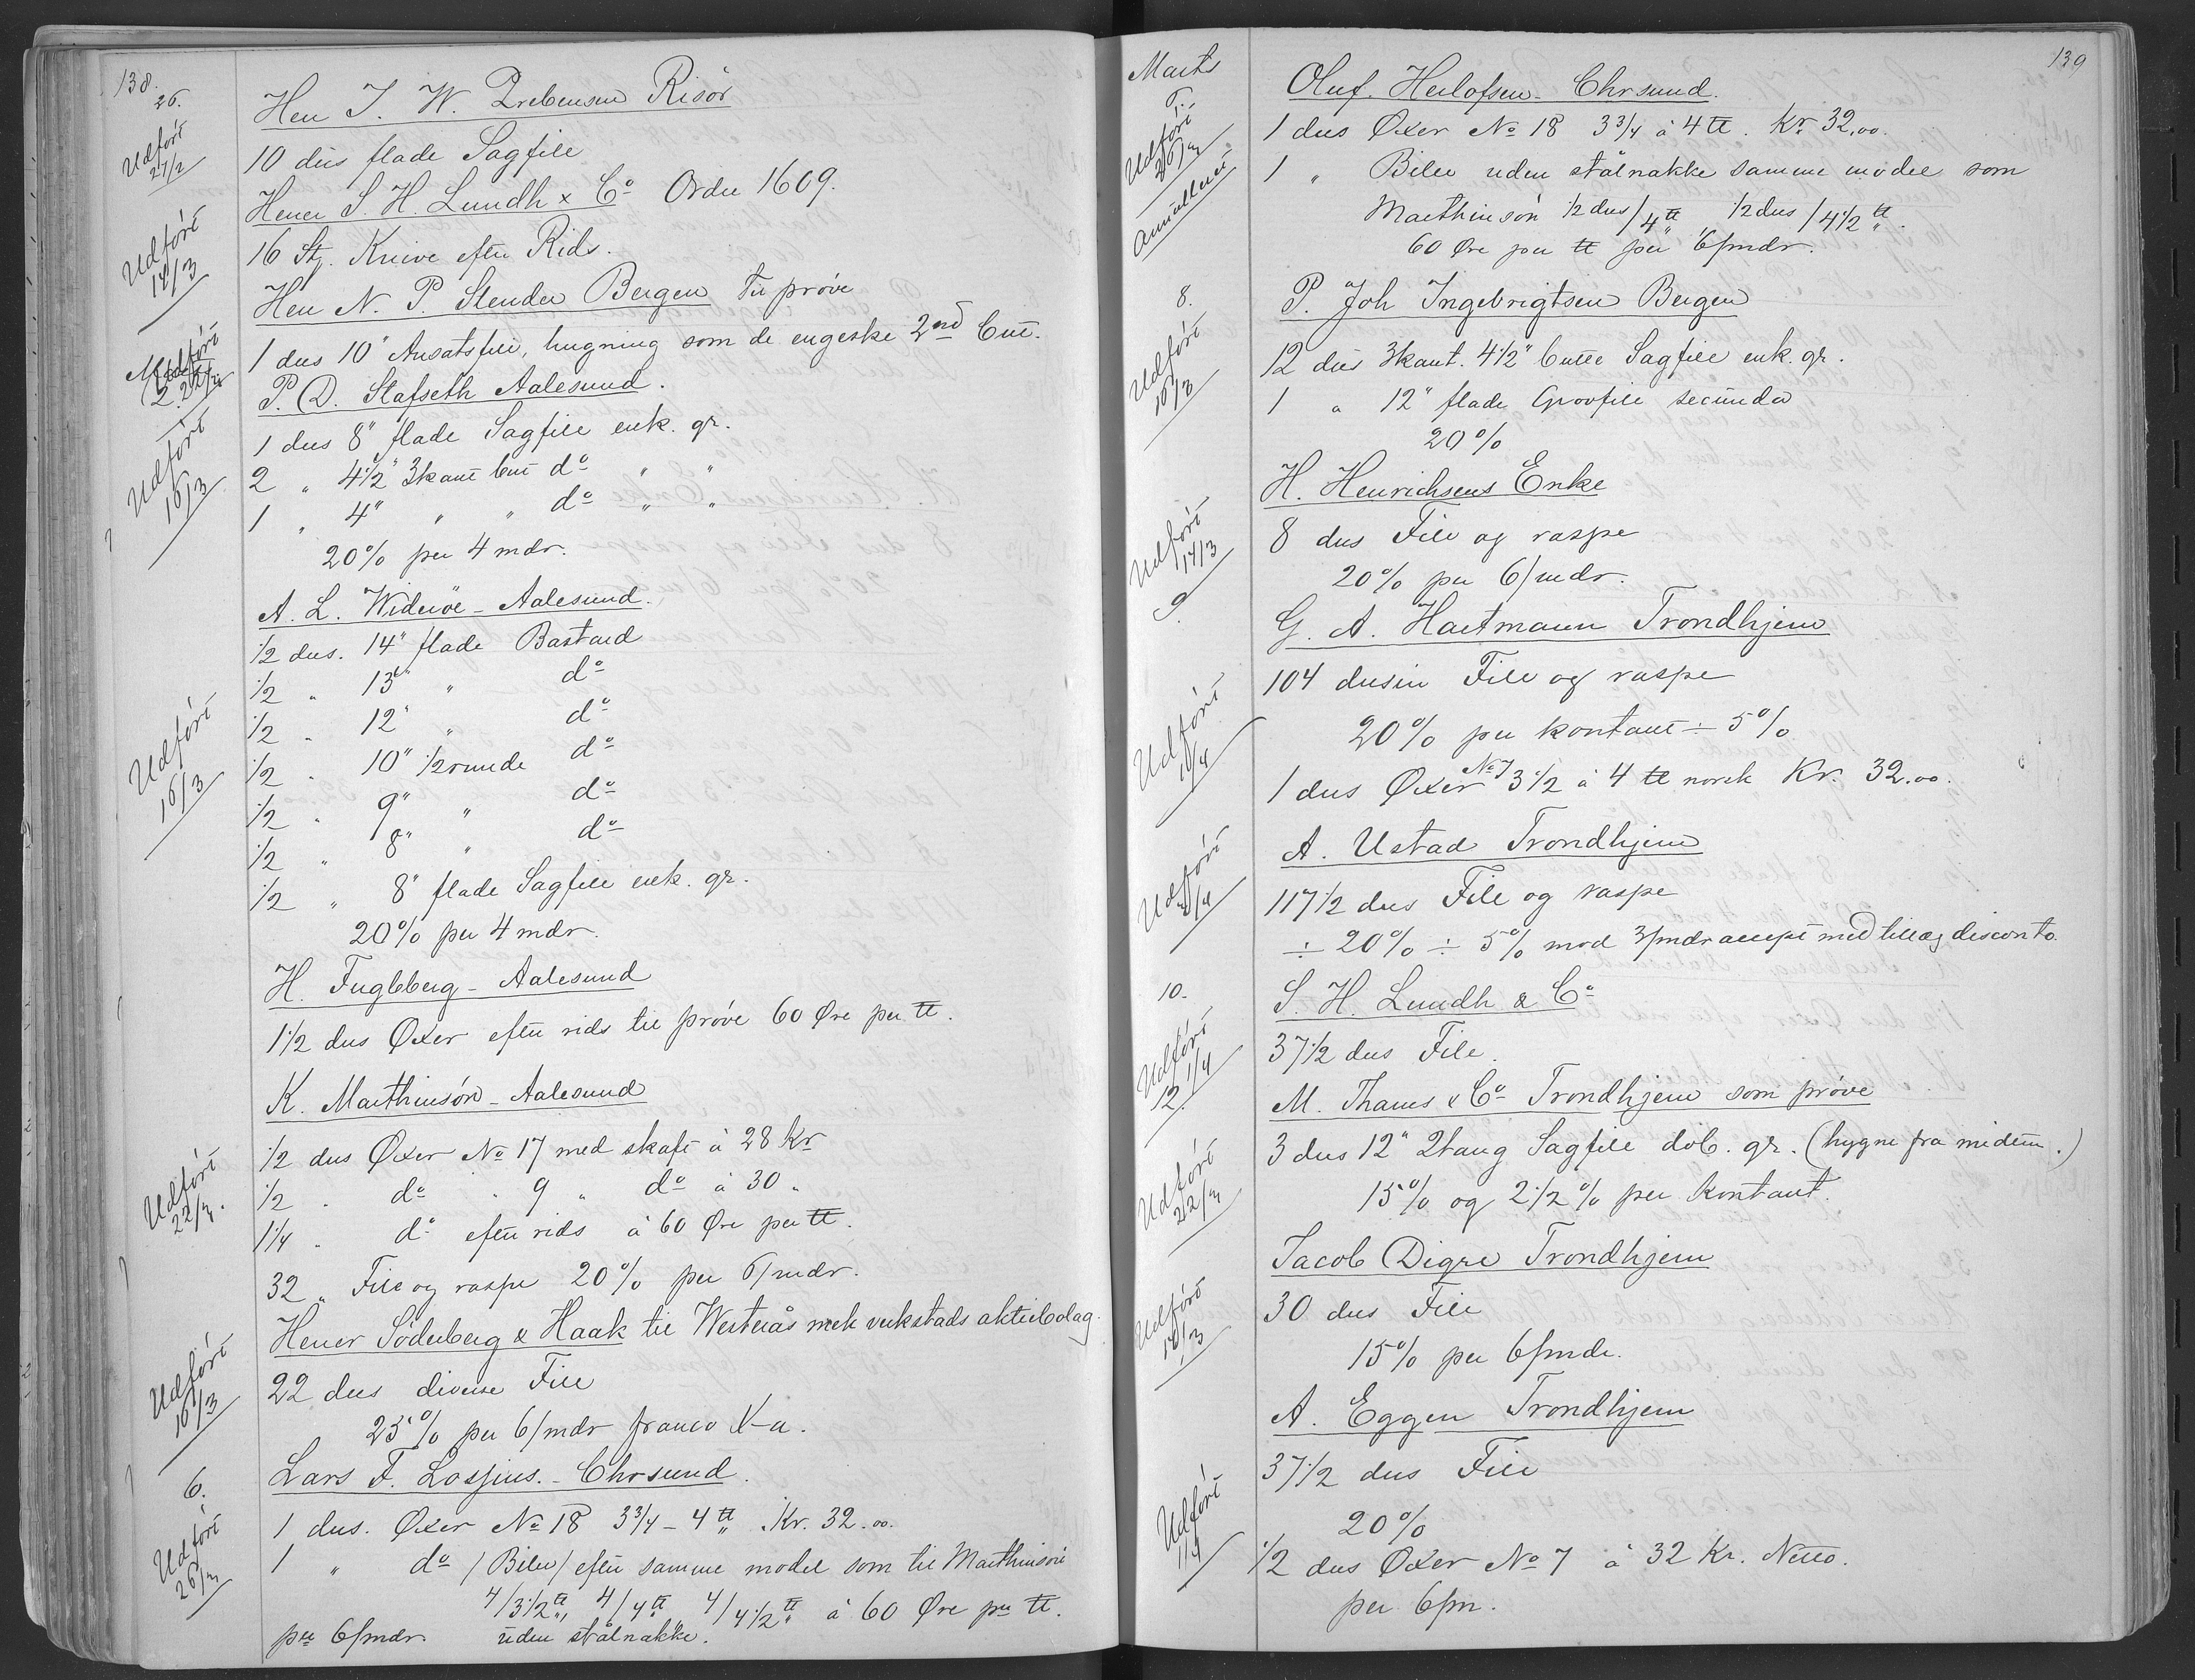 138.
26.
Herr J. W. Prebensen Risör
Udfört 27/2
10 dus flade Sagfile
Herrer S. H. Lundh & Co Ordre 1609.
Udfört 14/3
16 St. Knive efter Rids.
Herr N. P. Stender Bergen Til prøve
1 dus 10" Ansatsfile, hugning som de engelske 2nd Cut.
Marts 2.
Udfört 22/3
P. D. Stafseth Aalesund.
Udfört 16/3
1 dus 8" flade Sagfile enk. gr.
2 " 4 1/2" 3kant Cut do " "
1 " 4" " " do " "
20% per 4 mdr.
A. L. Widerøe - Aalesund.
Udfört 16/3
1/2 dus. 14" flade Bastard
1/2 " 13" " do
1/2 " 12" " do
1/2 " 10" 1/2runde do
1/2 " 9" " do
1/2 " 8" " do
1/2 " 8" flade Sagfile enk. gr.
20% per 4 mdr.
H. Fugleberg - Aalesund
1 1/2 dus Øxer efter rids til prøve 60 Øre per ℔.
K. Marthinsön - Aalesund
Udfört 22/3.
1/2 dus Øxer No 17 med skaft à 28 Kr
1/2 " do " 9 " do à 30 "
1 1/4 " do efter rids à 60 Øre per ℔.
32 " File og raspe 20% per 6/mdr.
Herrer Söderberg & Haak til Westerås mek verkstads aktiebolag.
Udfört 16/3
22 dus diverse File
25% per 6/mdr franco X-a.
6.
Lars F. Lossius. - Chrsund.
Udfört 26/3
1 dus. Øxer No 18 3 3/4 - 4 ℔ " Kr. 32.00.
1 " do /Biler/ efter samme model som til Marthinsön
4/3 1/2 ℔", 4/4 ℔" 4/4 1/2 ℔" à 60 Øre per ℔.
per 6/mdr. uden stålnakke.
139
Marts
Oluf. Herlofsen - Chrsund.
Udfört 26/3
1 dus Øxer No 18 3 3/4 à 4 ℔. Kr 32,00.
Annulleret
1 " Biler uden stålnakke samme model som
Marthinsön 1/2 dus/4 ℔" 1/2 dus/4 1/2 ℔".
60 Øre per ℔ per 6/mdr.
8.
P. Joh Ingebrigtsen Bergen
Udfört 16/3
12 dus 3kant. 4 1/2" Cutte Sagfile enk. gr.
1 " 12" flade Grovfile secunda
20%
H. Henrichsens Enke
Udfört 14/3
8 dus File og raspe
20% per 6/mdr.
9.
G. A. Hartmann Trondhjem
Udfört 16/4
104 dusin File og raspe
20% per kontant ÷ 5%
1 dus Øxer No 7 3 1/2 à 4 ℔ norsk Kr. 32.00.
A. Ustad Trondhjem
Udfört
117 1/2 dus File og raspe
÷ 20% ÷ 5% mod 3/mdr accept med tillæg disconto.
10.
S. H. Lundh & Co
Udfört 1/4
37 1/2 dus File.
12.
M. Thams & Co Trondhjem som prøve
Udfört 22/3
3 dus 12" 2tang Sagfile dob. gr. (hygne fra midten.)
15% og 2 1/2% per Kontant.
Jacob Digre Trondhjem
Udfört 16/3
30 dus File
15% per 6/mdr.
A. Eggen Trondhjem
Udfört 1/4
37 1/2 dus File
20%
1/2 dus Øxer No 7 à 32 Kr. Netto.
per 6/m.